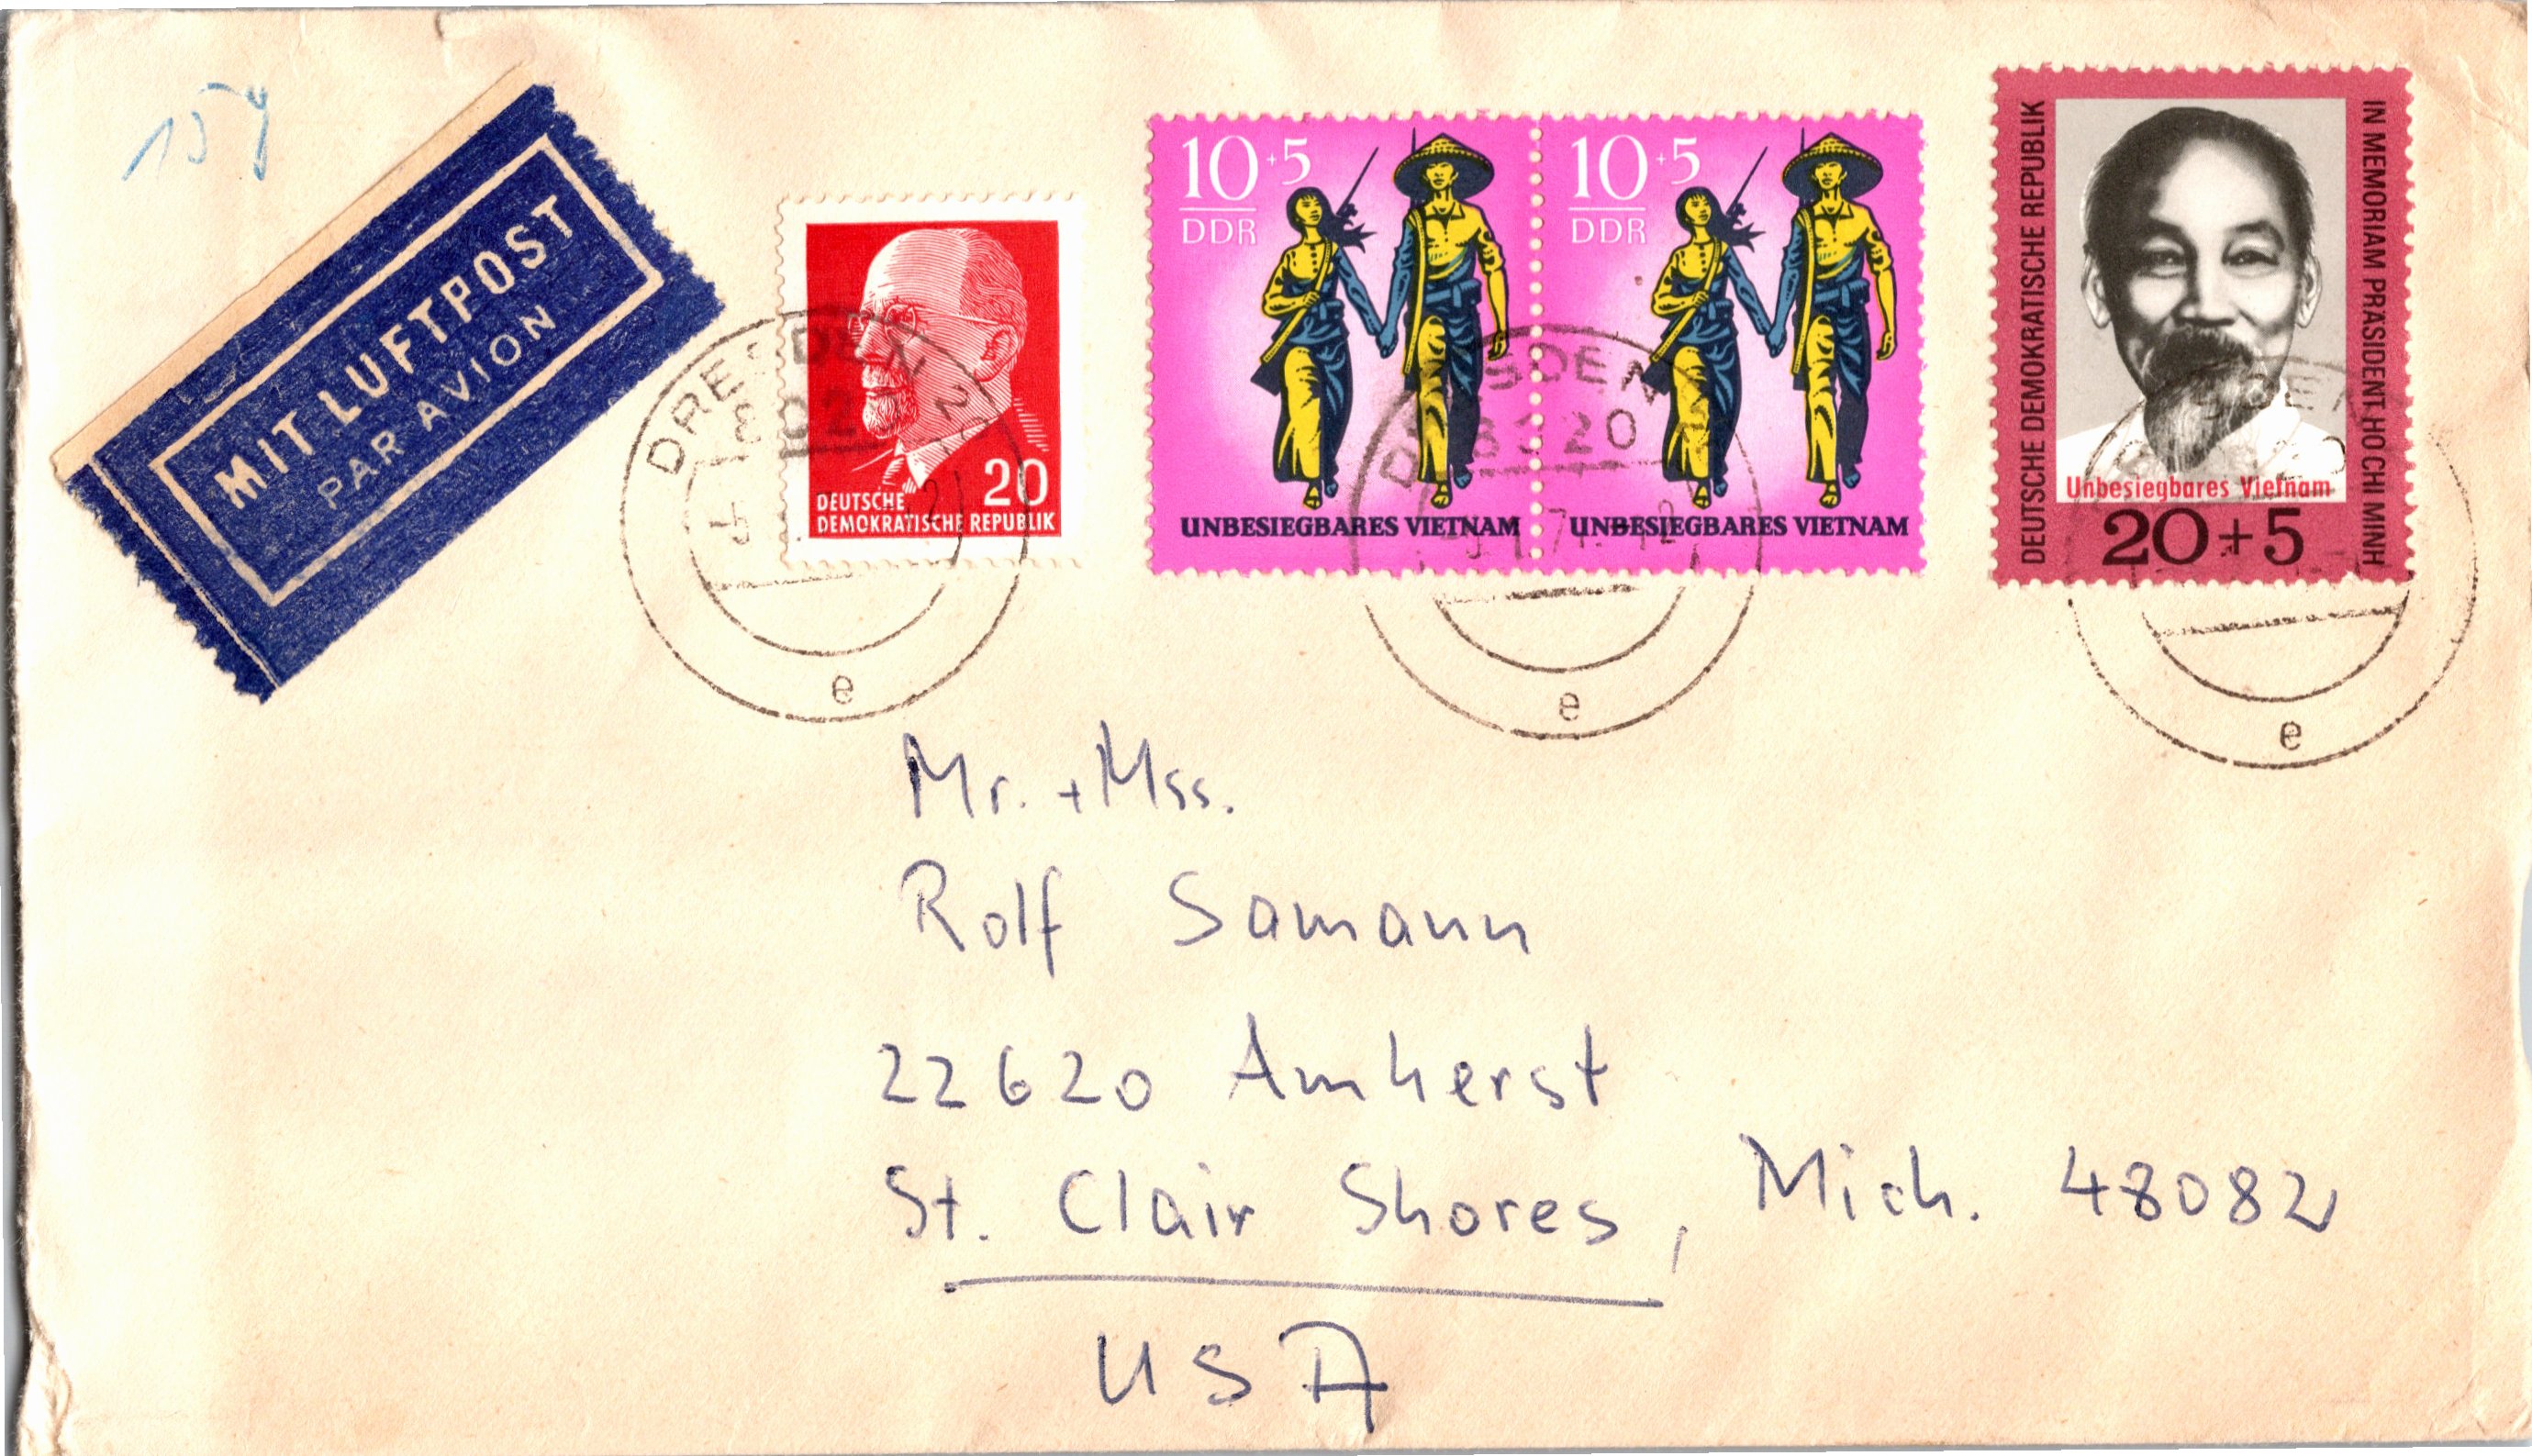 15g
MIT LUFTPOST
PAR AVION
20
DEUTSCHE
DEMOKRATISCHE REPUBLIK
10+5
DDR
UNBESIEGBARES VIETNAM
10+5
DDR
UNBESIEGBARES VIETNAM
DEUTSCHE DEMOKRATISCHE REPUBLIK
IN MEMORIAM PRÄSIDENT HO CHI MINH
Unbesiegbares Vietnam
20+5
DRESDEN
8020
e
DRESDEN
8020
e
e
Mr. + Mss.
Rolf Samann
22620 Amherst
St. Clair Shores, Mich. 48082
USA